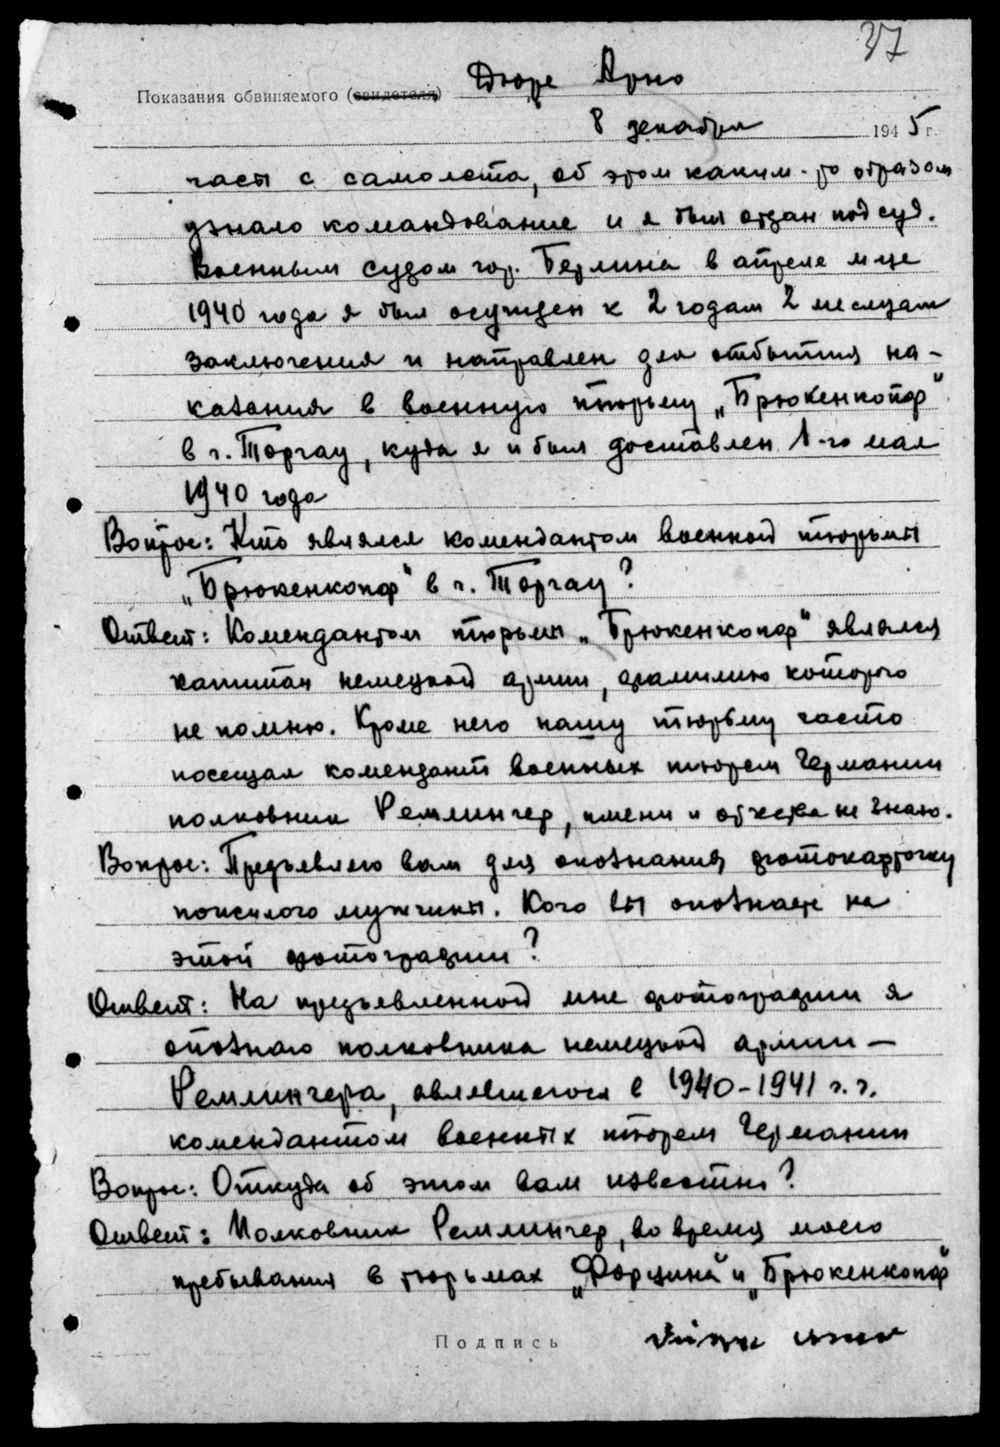 37
Показания обвиняемого (свидетеля) Дюре Арно
8 декабря 1945 г.
часы с самолета, об этом каким-то образом
узнало командование и я был отдан под суд.
Военным судом гор. Берлина в апреле м-це
1940 года я был осужден к 2 годам 2 месяцам
заключения и направлен для отбытия на-
казания в военную тюрьму „Брюкенкопф"
в г. Торгау, куда я и был доставлен 1-го мая
1940 года
Вопрос: Кто являлся комендантом военной тюрьмы
„Брюкенкопф" в г. Торгау?
Ответ: Комендантом тюрьмы „Брюкенкопф" являлся
капитан немецкой армии, фамилию которого
не помню. Кроме него нашу тюрьму часто
посещал комендант военных тюрем Германии
полковник Ремлингер, имени и отчества не знаю.
Вопрос: Предъявляю вам для опознания фотокарточку
пожилого мужчины. Кого вы опознаете на
этой фотографии?
Ответ: На предъявленной мне фотографии я
опознаю полковника немецкой армии —
Ремлингера, являвшегося в 1940-1941 г.г.
комендантом военных тюрем Германии
Вопрос: Откуда об этом вам известно?
Ответ: Полковник Ремлингер, во время моего
пребывания в тюрьмах „Форцина" и „Брюкенкопф"
Подпись